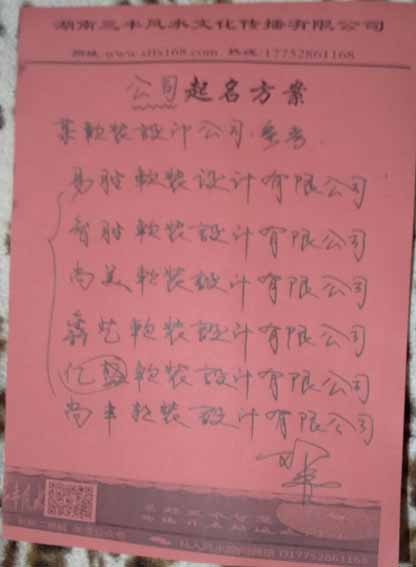 湖南三丰风水文化传播有限公司
网址:www.sffs168.com 热线:17752861168
公司起名方案
某軟装設计公司:参考
易胜軟装设计有限公司
智胜軟装設计有限公司
尚美軟装設计有限公司
鑫艺軟装設计有限公司
亿盛軟装設计有限公司
尚丰軟装設计有限公司
17752861168